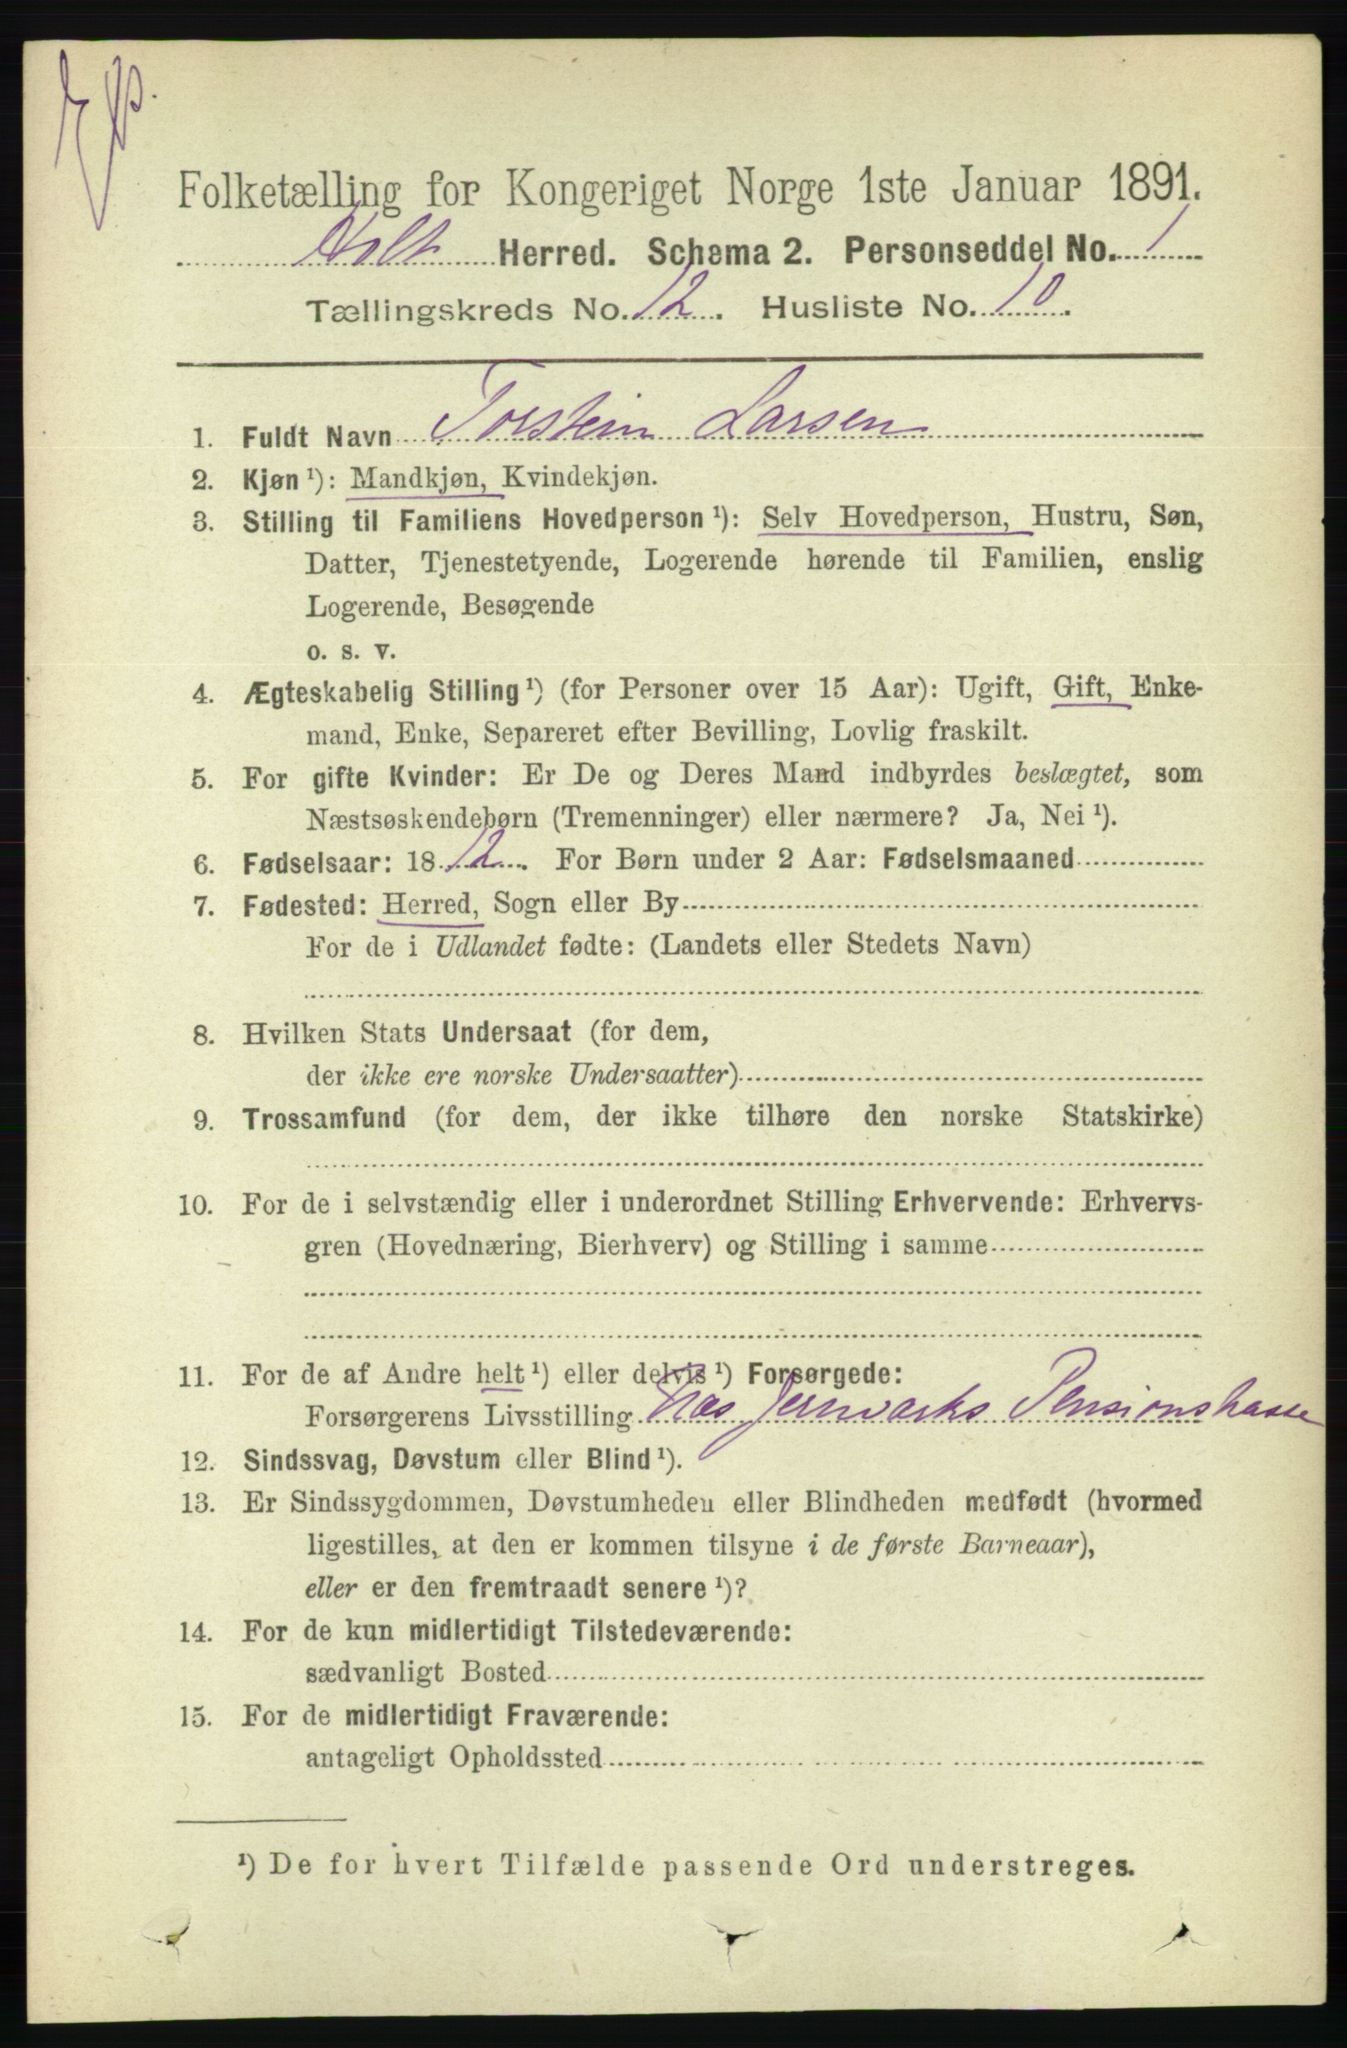 Folketælling for Kongeriget Norge 1ste Januar 1891.
Holt Herred. Schema 2. Personseddel No. 1
Tællingskreds No. 12. Husliste No. 10.
1. Fuldt Navn Torstein Larsen
2. Kjøn ¹): Mandkjøn, Kvindekjøn.
3. Stilling til Familiens Hovedperson ¹): Selv Hovedperson, Hustru, Søn,
Datter, Tjenestetyende, Logerende hørende til Familien, enslig
Logerende, Besøgende
o. s. v.
4. Ægteskabelig Stilling ¹) (for Personer over 15 Aar): Ugift, Gift, Enke-
mand, Enke, Separeret efter Bevilling, Lovlig fraskilt.
5. For gifte Kvinder: Er De og Deres Mand indbyrdes beslægtet, som
Næstsøskendebørn (Tremenninger) eller nærmere? Ja, Nei ¹).
6. Fødselsaar: 18 12. For Børn under 2 Aar: Fødselsmaaned
7. Fødested: Herred, Sogn eller By
For de i Udlandet fødte: (Landets eller Stedets Navn)
8. Hvilken Stats Undersaat (for dem,
der ikke ere norske Undersaatter)
9. Trossamfund (for dem, der ikke tilhøre den norske Statskirke)
10. For de i selvstændig eller i underordnet Stilling Erhvervende: Erhvervs-
gren (Hovednæring, Bierhverv) og Stilling i samme
11. For de af Andre helt ¹) eller delvis ¹) Forsørgede:
Forsørgerens Livsstilling Næs Jernværks Pensionskasse
12. Sindssvag, Døvstum eller Blind ¹).
13. Er Sindssygdommen, Døvstumheden eller Blindheden medfødt (hvormed
ligestilles, at den er kommen tilsyne i de første Barneaar),
eller er den fremtraadt senere ¹)?
14. For de kun midlertidigt Tilstedeværende:
sædvanligt Bosted
15. For de midlertidigt Fraværende:
antageligt Opholdssted
¹) De for hvert Tilfælde passende Ord understreges.